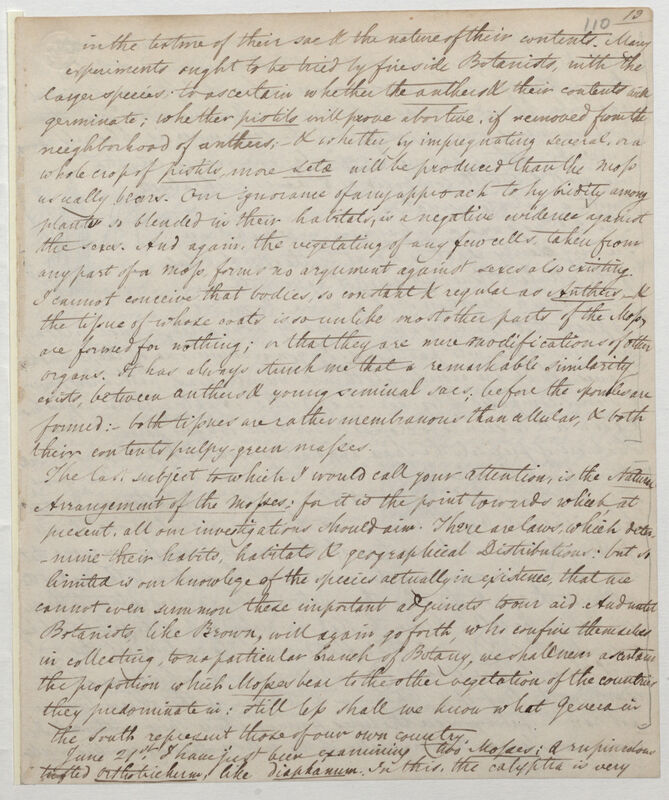 110 13
in the texture of their sac & the nature of their contents. Many
experiments ought to be tried by fireside Botanists, with the
larger species: to ascertain whether the anthers & their contents will
germinate; whether pistils will prove abortive, if removed from the
neighborhood of anthers; – & whether, by impregnating several, or a
whole crop of pistils, more setæ will be produced than the Moss
usually bears. Our ignorance of any approach to hybridity among
plants so blended in their habitats, is a negative evidence against
the sexes. And again, the vegetating of any few cells, taken from
any part of a moss, forms no argument against sexes also existing.
I cannot conceive that bodies, so constant & regular as Anthers – &
the tissue of whose coats is so unlike most other parts of the Moss,
are formed for nothing; or that they are mere modifications of other
organs. It has always struck me that a remarkable similarity
exists, between anthers & young seminal sacs; before the sporules are
formed: – both tissues are rather membranous than cellular, & both
their contents pulpy-green masses.
The last subject to which I would call your attention, is the Natural
Arrangement of the Mosses; for it is the point towards which, at
present, all our investigations should aim. There are laws, which deter-
-mine their habits, habitats & geographical Distributions: but so
limited is our knowlege of the species actually in existence, that we
cannot even summon these important adjuncts to our aid & until
Botanists, like Brown, will again go forth, who confine themselves
in collecting, to no particular branch of Botany, we shall never ascertain
the proportion which Mosses bear to the other vegetation of the countries
they predominate in: still less shall we know what Genera in
the South represent those of our own country.
June 21st I have just been examining two Mosses; a
tufted orthotrichum, like diaphanum. In this, the calyptra is very